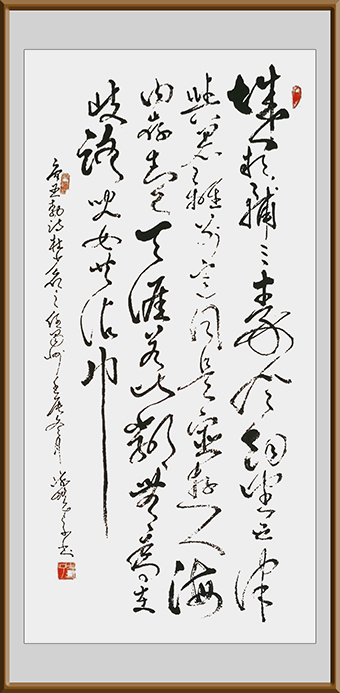 城阙辅三秦风烟望五津
与君离别意同是宦游人海
内存知己天涯若比邻无为在
歧路儿女共沾巾
唐王勃诗杜少府之任蜀州